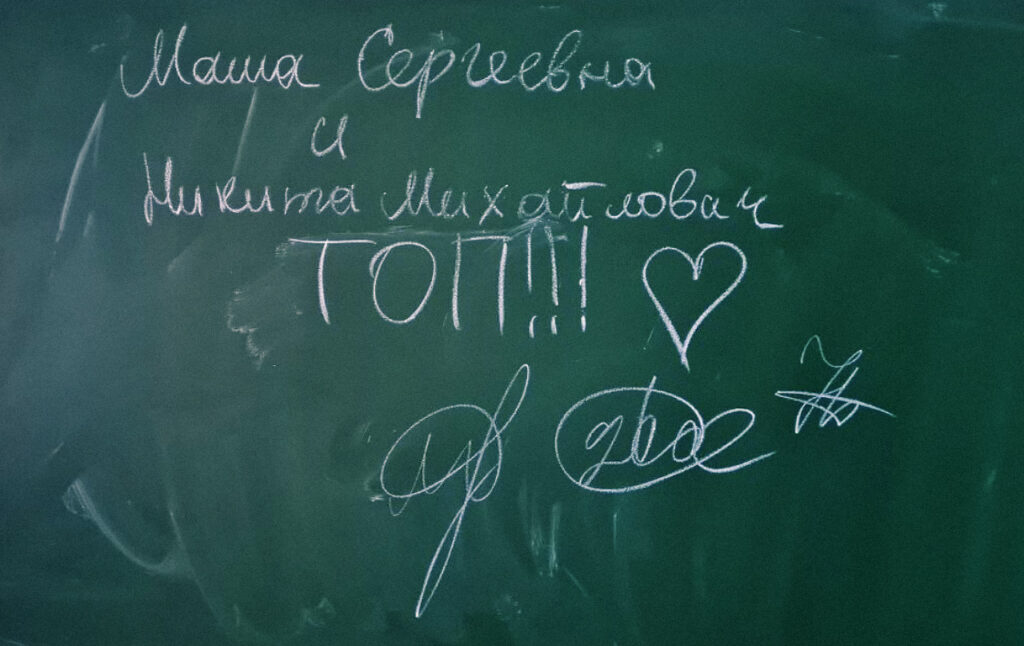 Маша Сергеевна
и
Никита Михайловач
ТОП!!!